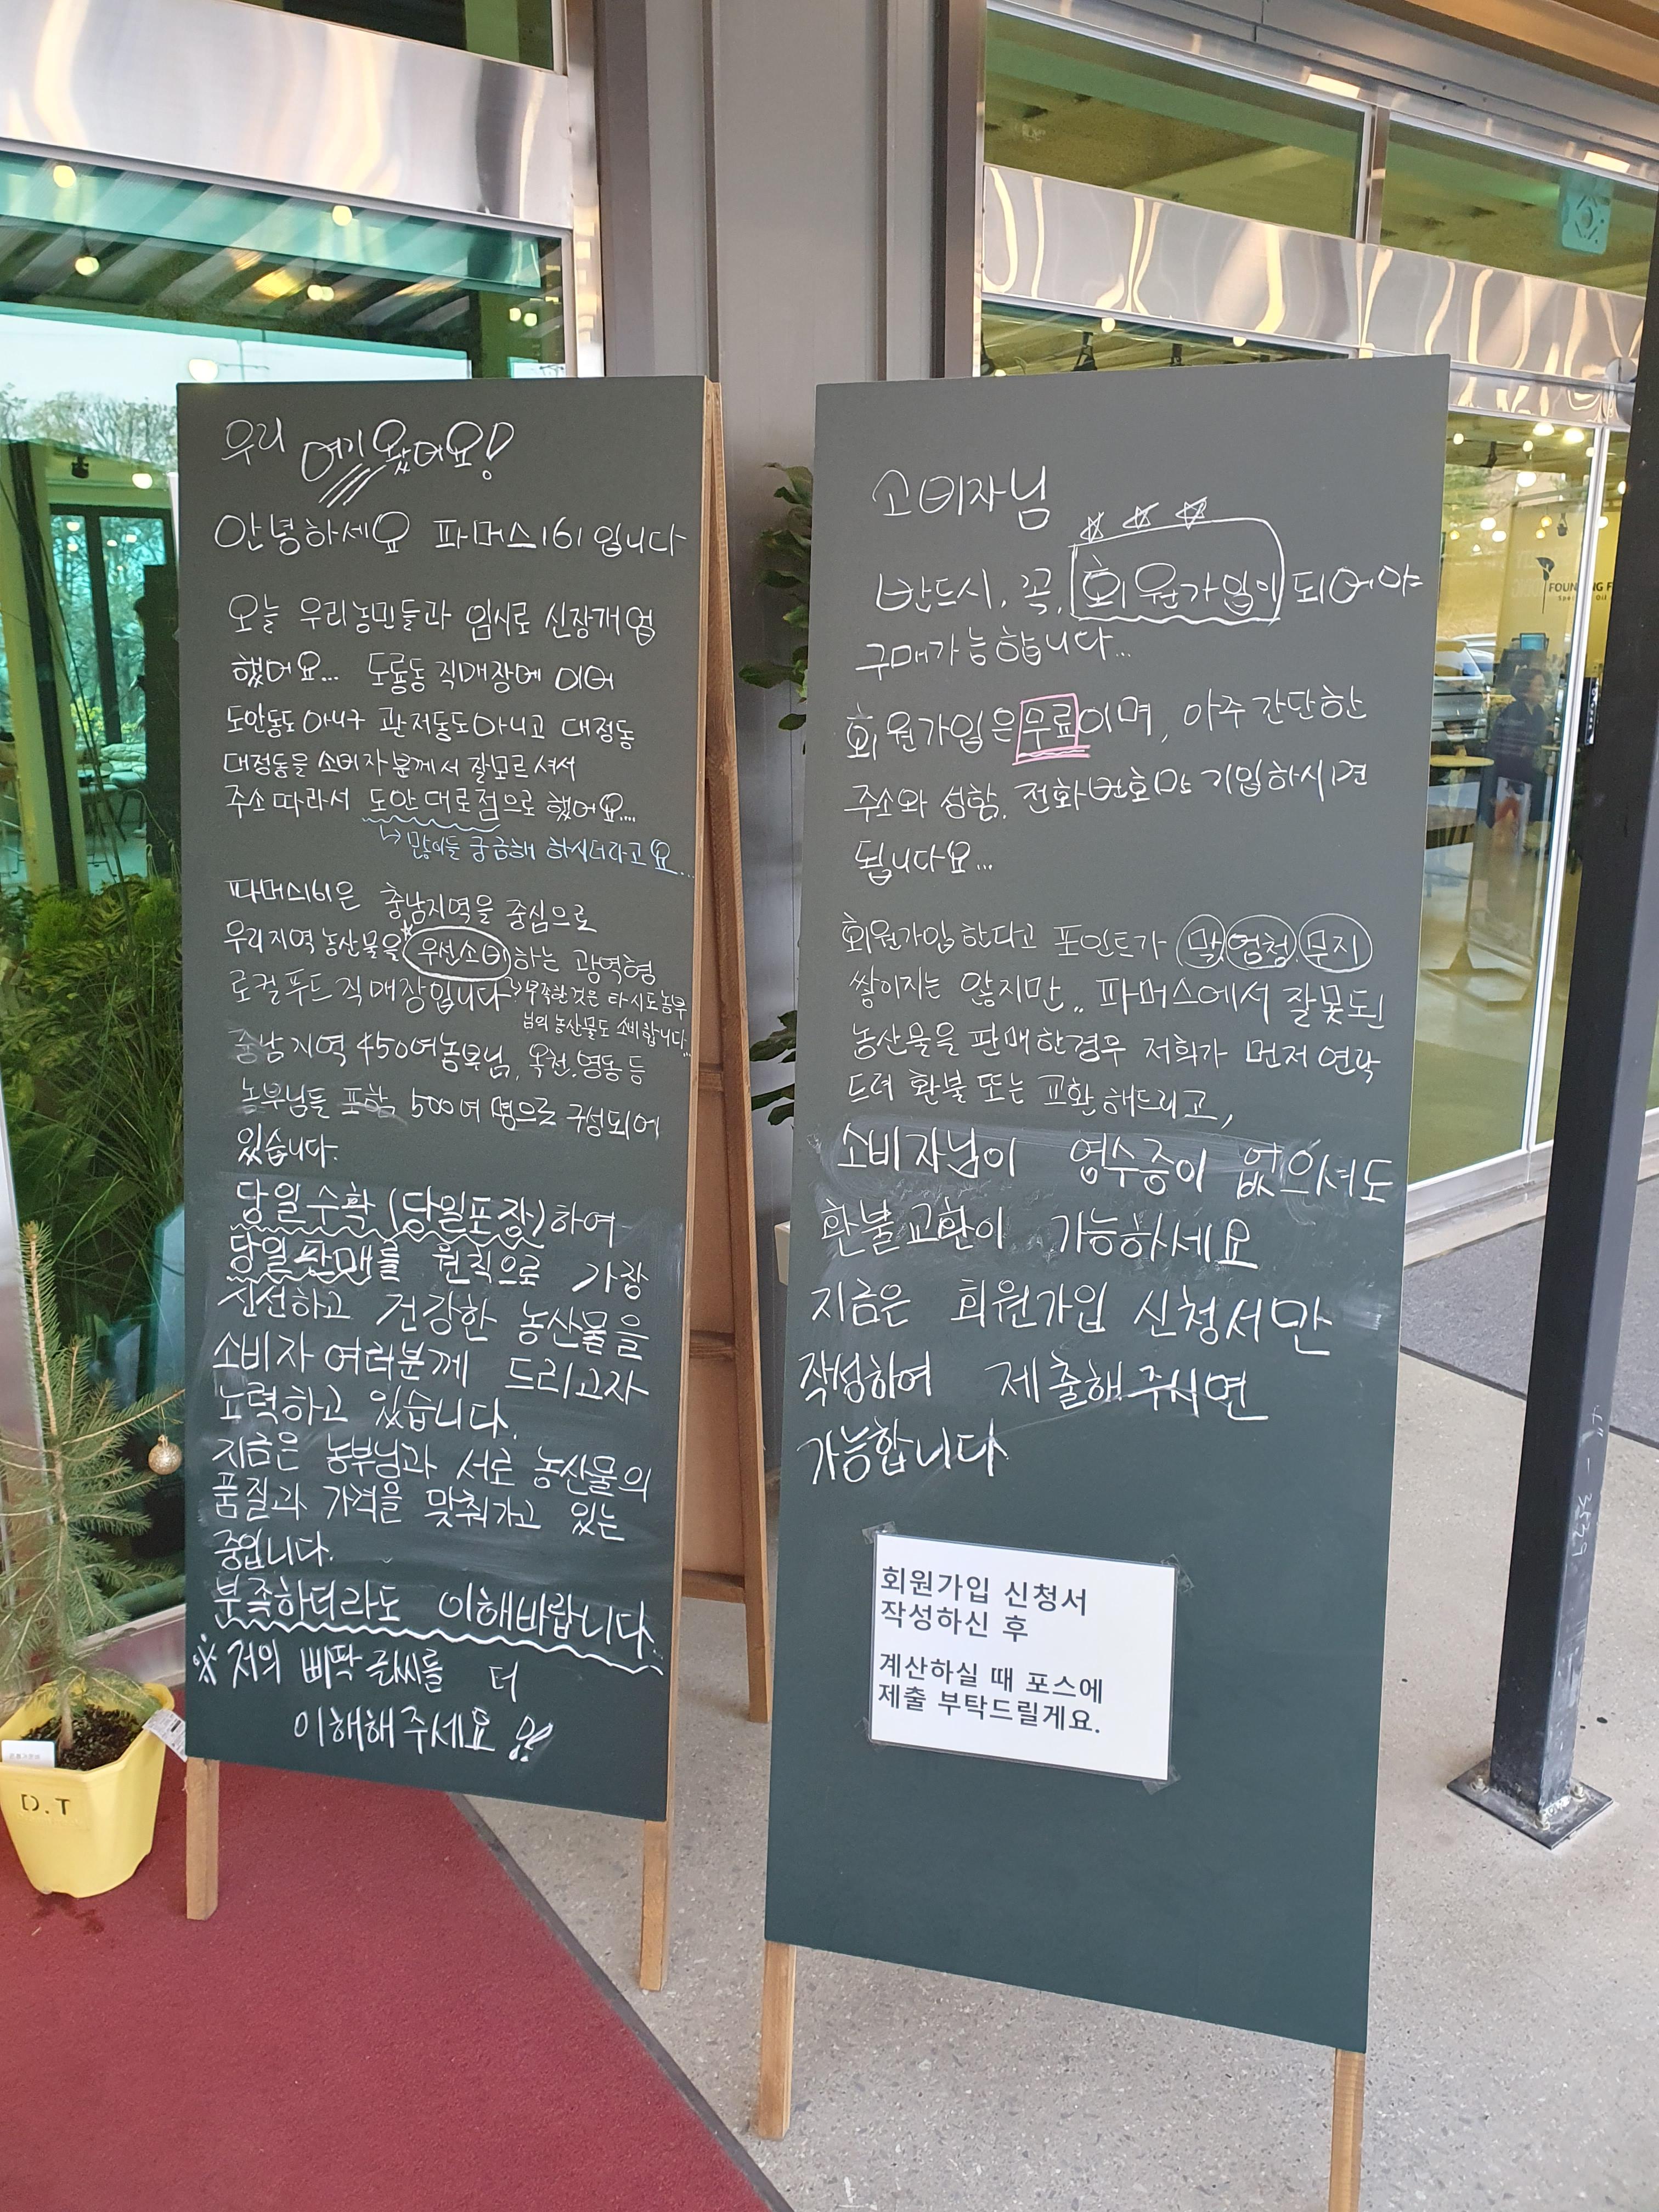 우리 여기 왔어요!
안녕하세요 파머스161입니다
오늘 우리농민들과 임시로 신장개업
했어요... 도룡동 직매장에 이어
도안동도 아니구 관저동도 아니고 대정동
대정동을 소비자분께서 잘모르셔서
주소 따라서 도안대로점으로 했어요....
↳많이들 궁금해 하시더라고요...
파머스161은 충남지역을 중심으로
우리지역 농산물을 우선소비하는 광역형
로컬푸드 직매장입니다
부족한것은 타시도농부
님의 농산물도 소비합니다...
충남지역 450여농부님, 옥천.영동 등
농부님들 포함 500여 명으로 구성되어
있습니다.
당일수확(당일포장)하여
당일판매를 원칙으로 가장
신선하고 건강한 농산물을
소비자 여러분께 드리고자
노력하고 있습니다.
지금은 농부님과 서로 농산물의
품질과 가격을 맞춰가고 있는
중입니다.
부족하더라도 이해바랍니다.
※ 저의 삐딱 글씨를 더
이해해주세요
소비자님
반드시, 꼭, 회원가입이 되어야
구매가능합니다...
회원가입은 무료이며, 아주 간단한
주소와 성함, 전화번호만 기입하시면
됩니다요...
회원가입 한다고 포인트가 막,엄청,무지
쌓이지는 않지만.. 파머스에서 잘못된
농산물을 판매한경우 저희가 먼저 연락
드려 환불 또는 교환해드리고,
소비자님이 영수증이 없으셔도
환불교환이 가능하세요
지금은 회원가입 신청서만
작성하여 제출해주시면
가능합니다
회원가입 신청서
작성하신 후
계산하실 때 포스에
제출 부탁드릴게요.
D.T